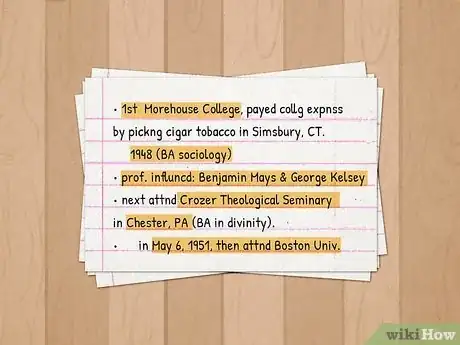 • 1st Morehouse College, payed collg expnss
by pickng cigar tobacco in Simsbury, CT.
1948 (BA sociology)
• prof. influncd: Benjamin Mays & George Kelsey
• next attnd Crozer Theological Seminary
in Chester, PA (BA in divinity).
• in May 6, 1951, then attnd Boston Univ.
wikiHow